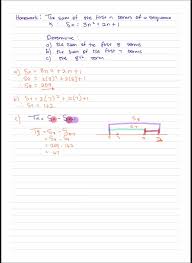 Homework: The sum of the first n terms of a sequence
is Sn = 3n² + 2n + 1
Determine
a) the sum of the first 8 terms
b) the sum of the first 7 terms
c) the 8th term
a) Sn = 3n² + 2n + 1
S8 = 3(8)² + 2(8) + 1
S8 = 209
b) S7 = 3(7)² + 2(7) + 1
S7 = 162
c) Tn = Sn - Sn-1
T8 = S8 - S8-1
= S8 - S7
= 209 - 162
= 47
S8
S7